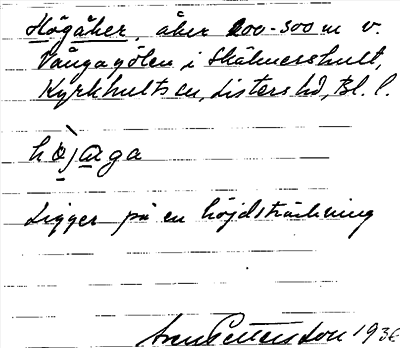 Högåker, åker 200-300 m v.
Vångagölen i Skälmershult,
Kyrkhults sn, Listers hd, Bl. l.
hö̀jaga
Ligger på en höjdsträckning
Sven Pettersson 1936